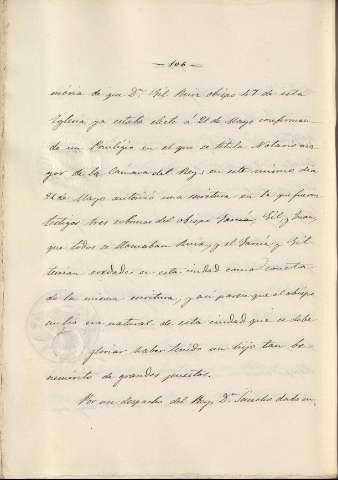 — 106 —
moria de que Dn. Gil Ruiz obispo 47 de esta
Iglesia ya estaba electo á 21 de Mayo confirman-
do un Privilegio en el que se titula Notario ma-
yor de la Camara del Rey: en este mismo dia
21 de Mayo autorizó una escritura en la que fueron
testigos tres sobrinos del obispo Garcia, Gil y Juan,
que todos se llamaban Ruiz, y el Garcia y Gil
tenian eredades en esta ciudad como consta
de la misma escritura, y asi parece que el obispo
su tio era natural de esta ciudad que se debe
gloriar haber tenido un hijo tan be-
nemérito de grandes puestos.
Por un despacho del Rey Dn. Sancho dado en